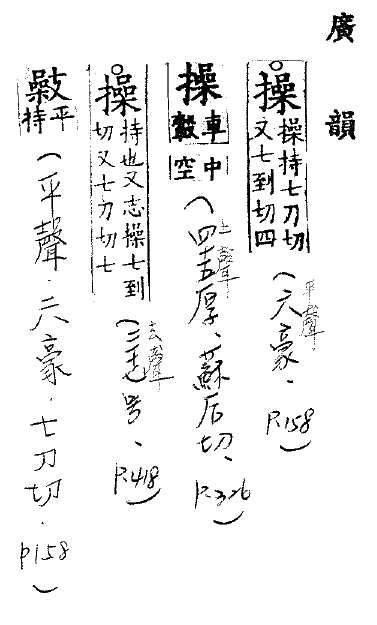 廣韻
操 操持七刀切又七到切四(平聲 六豪、P.158)
操 車轂中空(上聲 四十五厚、蘇后切、P.326)
操 持也又志操七到切又七刀切七(去聲 三十七号、P.418)
平持(平聲.六豪.七刀切.P158)